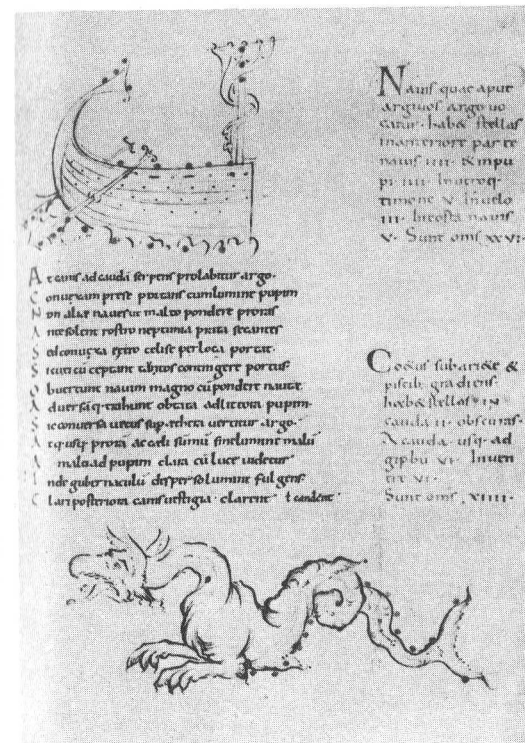 Nauis quae aput
arguos argo uo
catur. hab& stellas
in anteriore parte
nauis IIII. & in pu
pi IIII. In utroq.
timone V. In uelo
III. In costa nauis
V. Sunt oms XXVI.
At canis ad caudā serpens prolabitur argo.
Conuexam prese portans cum lumine puppim
Non aliae naues ut malto pondere proras
Ante solent rostro neptunia prata secantes
Sed conuexa retro caeli se per loca portat.
Sicut cū ceptant tabtos contingere portus
Obuertunt nauim magno cū pondere nautae
Aduersāq. trahunt obtata ad littora pupim.
Sic conuersa uetus sup. aethera uertitur argo.
Atq. usq. prora ac caeli sūmū sine lumine malū
A malo ad pupim clara cū luce uidetur
Inde gubernaculū disperso lumine fulgens
Clari posteriora canis uestigia clarent
Coetus sub ariete &
piscib. gradiens
hab& stellas IN
cauda II. obscuras.
A cauda usq. ad
gipbū VI. In uen
tre VI.
Sunt oms XIIII.